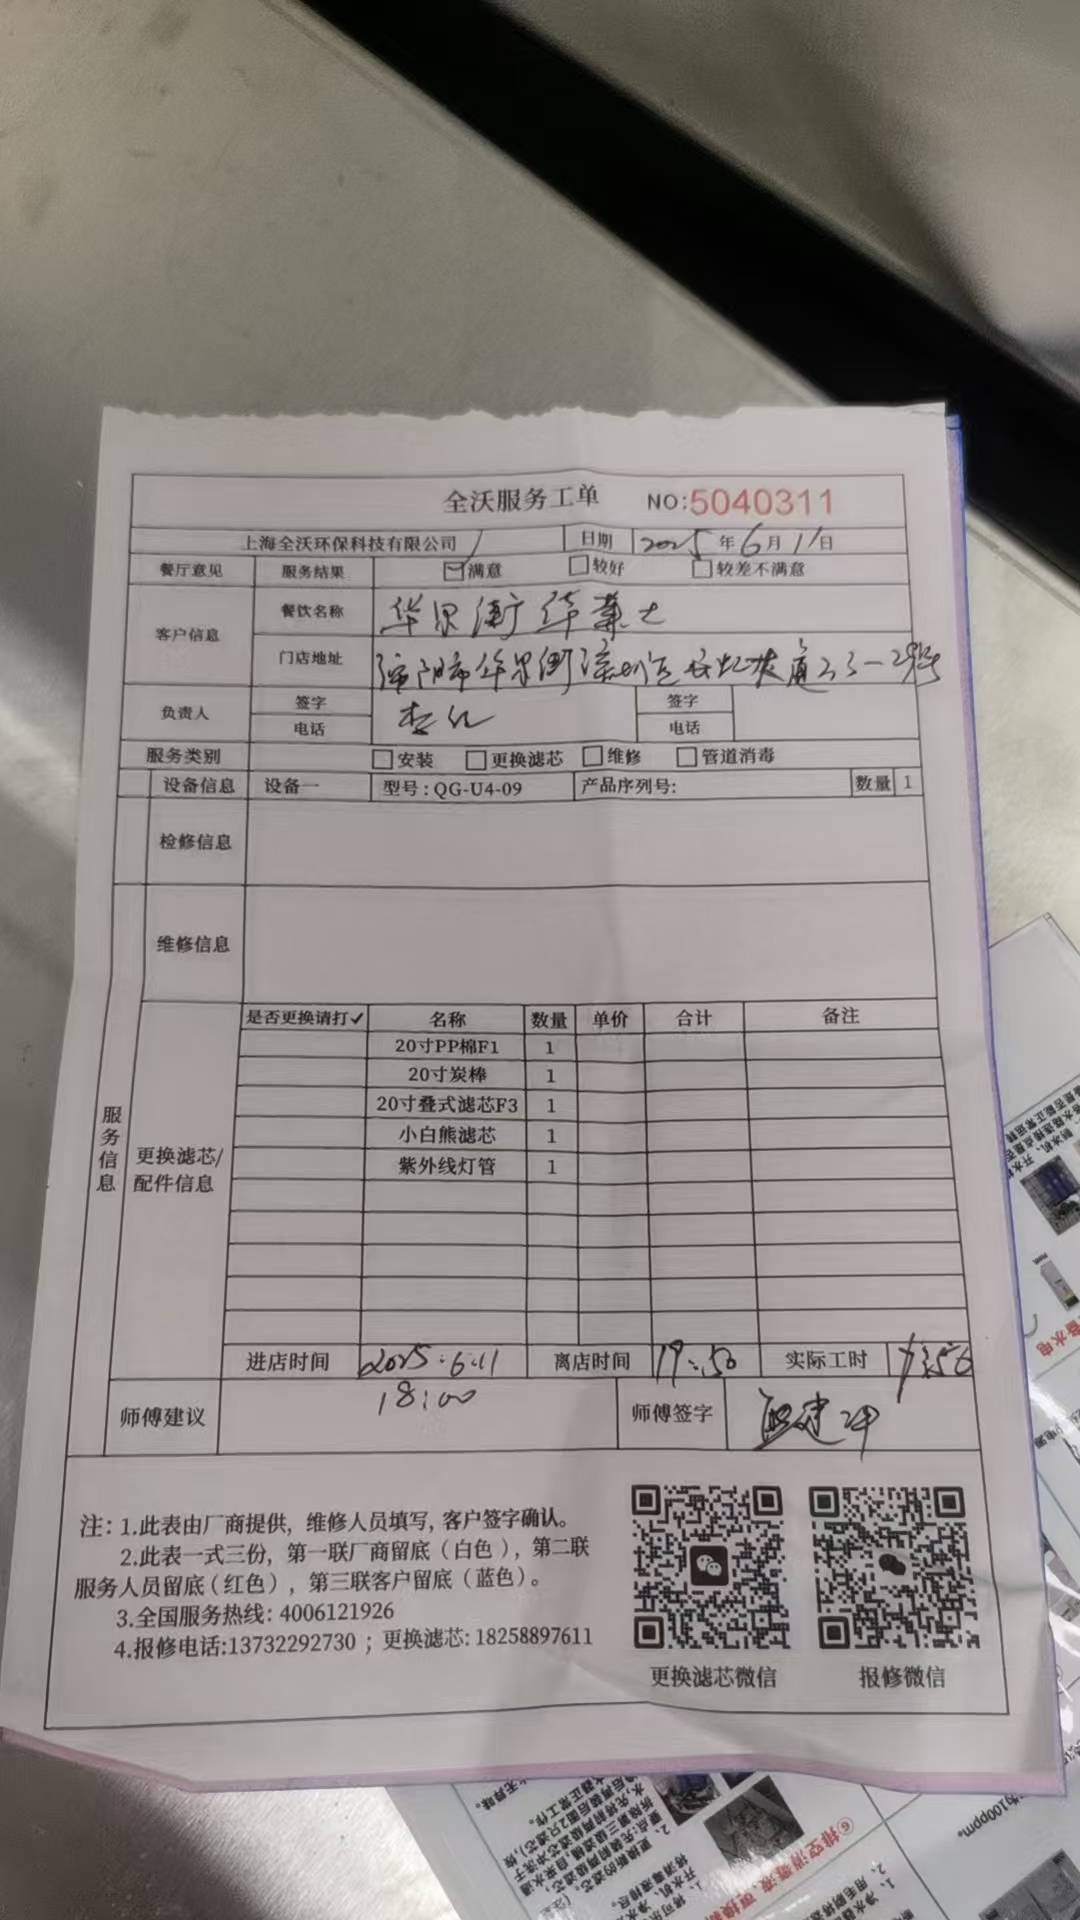 全沃服务工单 NO:5040311
上海全沃环保科技有限公司 日期 2025年6月11日
餐厅意见 服务结果 满意 较好 较差不满意
客户信息 餐饮名称 华莱士
门店地址
负责人 签字 签字
电话 电话
服务类别 安装 更换滤芯 维修 管道消毒
设备信息 设备一 型号:QG-U4-09 产品序列号: 数量 1
检修信息
维修信息
服务信息
更换滤芯/
配件信息
是否更换请打✓ 名称 数量 单价 合计 备注
20寸PP棉F1 1
20寸炭棒 1
20寸叠式滤芯F3 1
小白熊滤芯 1
紫外线灯管 1
进店时间 2025.6.11 离店时间 19:50 实际工时
18:00
师傅建议 师傅签字
注: 1.此表由厂商提供, 维修人员填写, 客户签字确认。
2.此表一式三份, 第一联厂商留底(白色), 第二联
服务人员留底(红色), 第三联客户留底(蓝色)。
3.全国服务热线: 4006121926
4.报修电话:13732292730 ; 更换滤芯: 18258897611
更换滤芯微信 报修微信